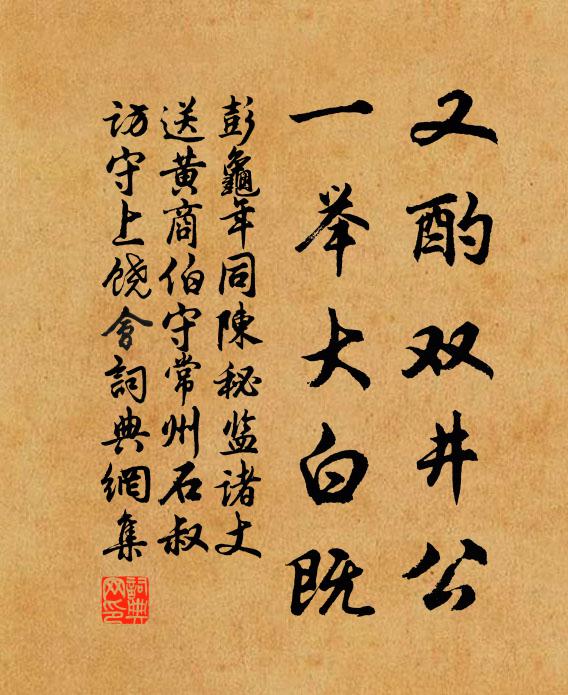 又酌双井公
一举大白既
彭龜年同陳秘监诸丈
送黄商伯守常州石叔
访守上饶會詞典網集
詞典
网印